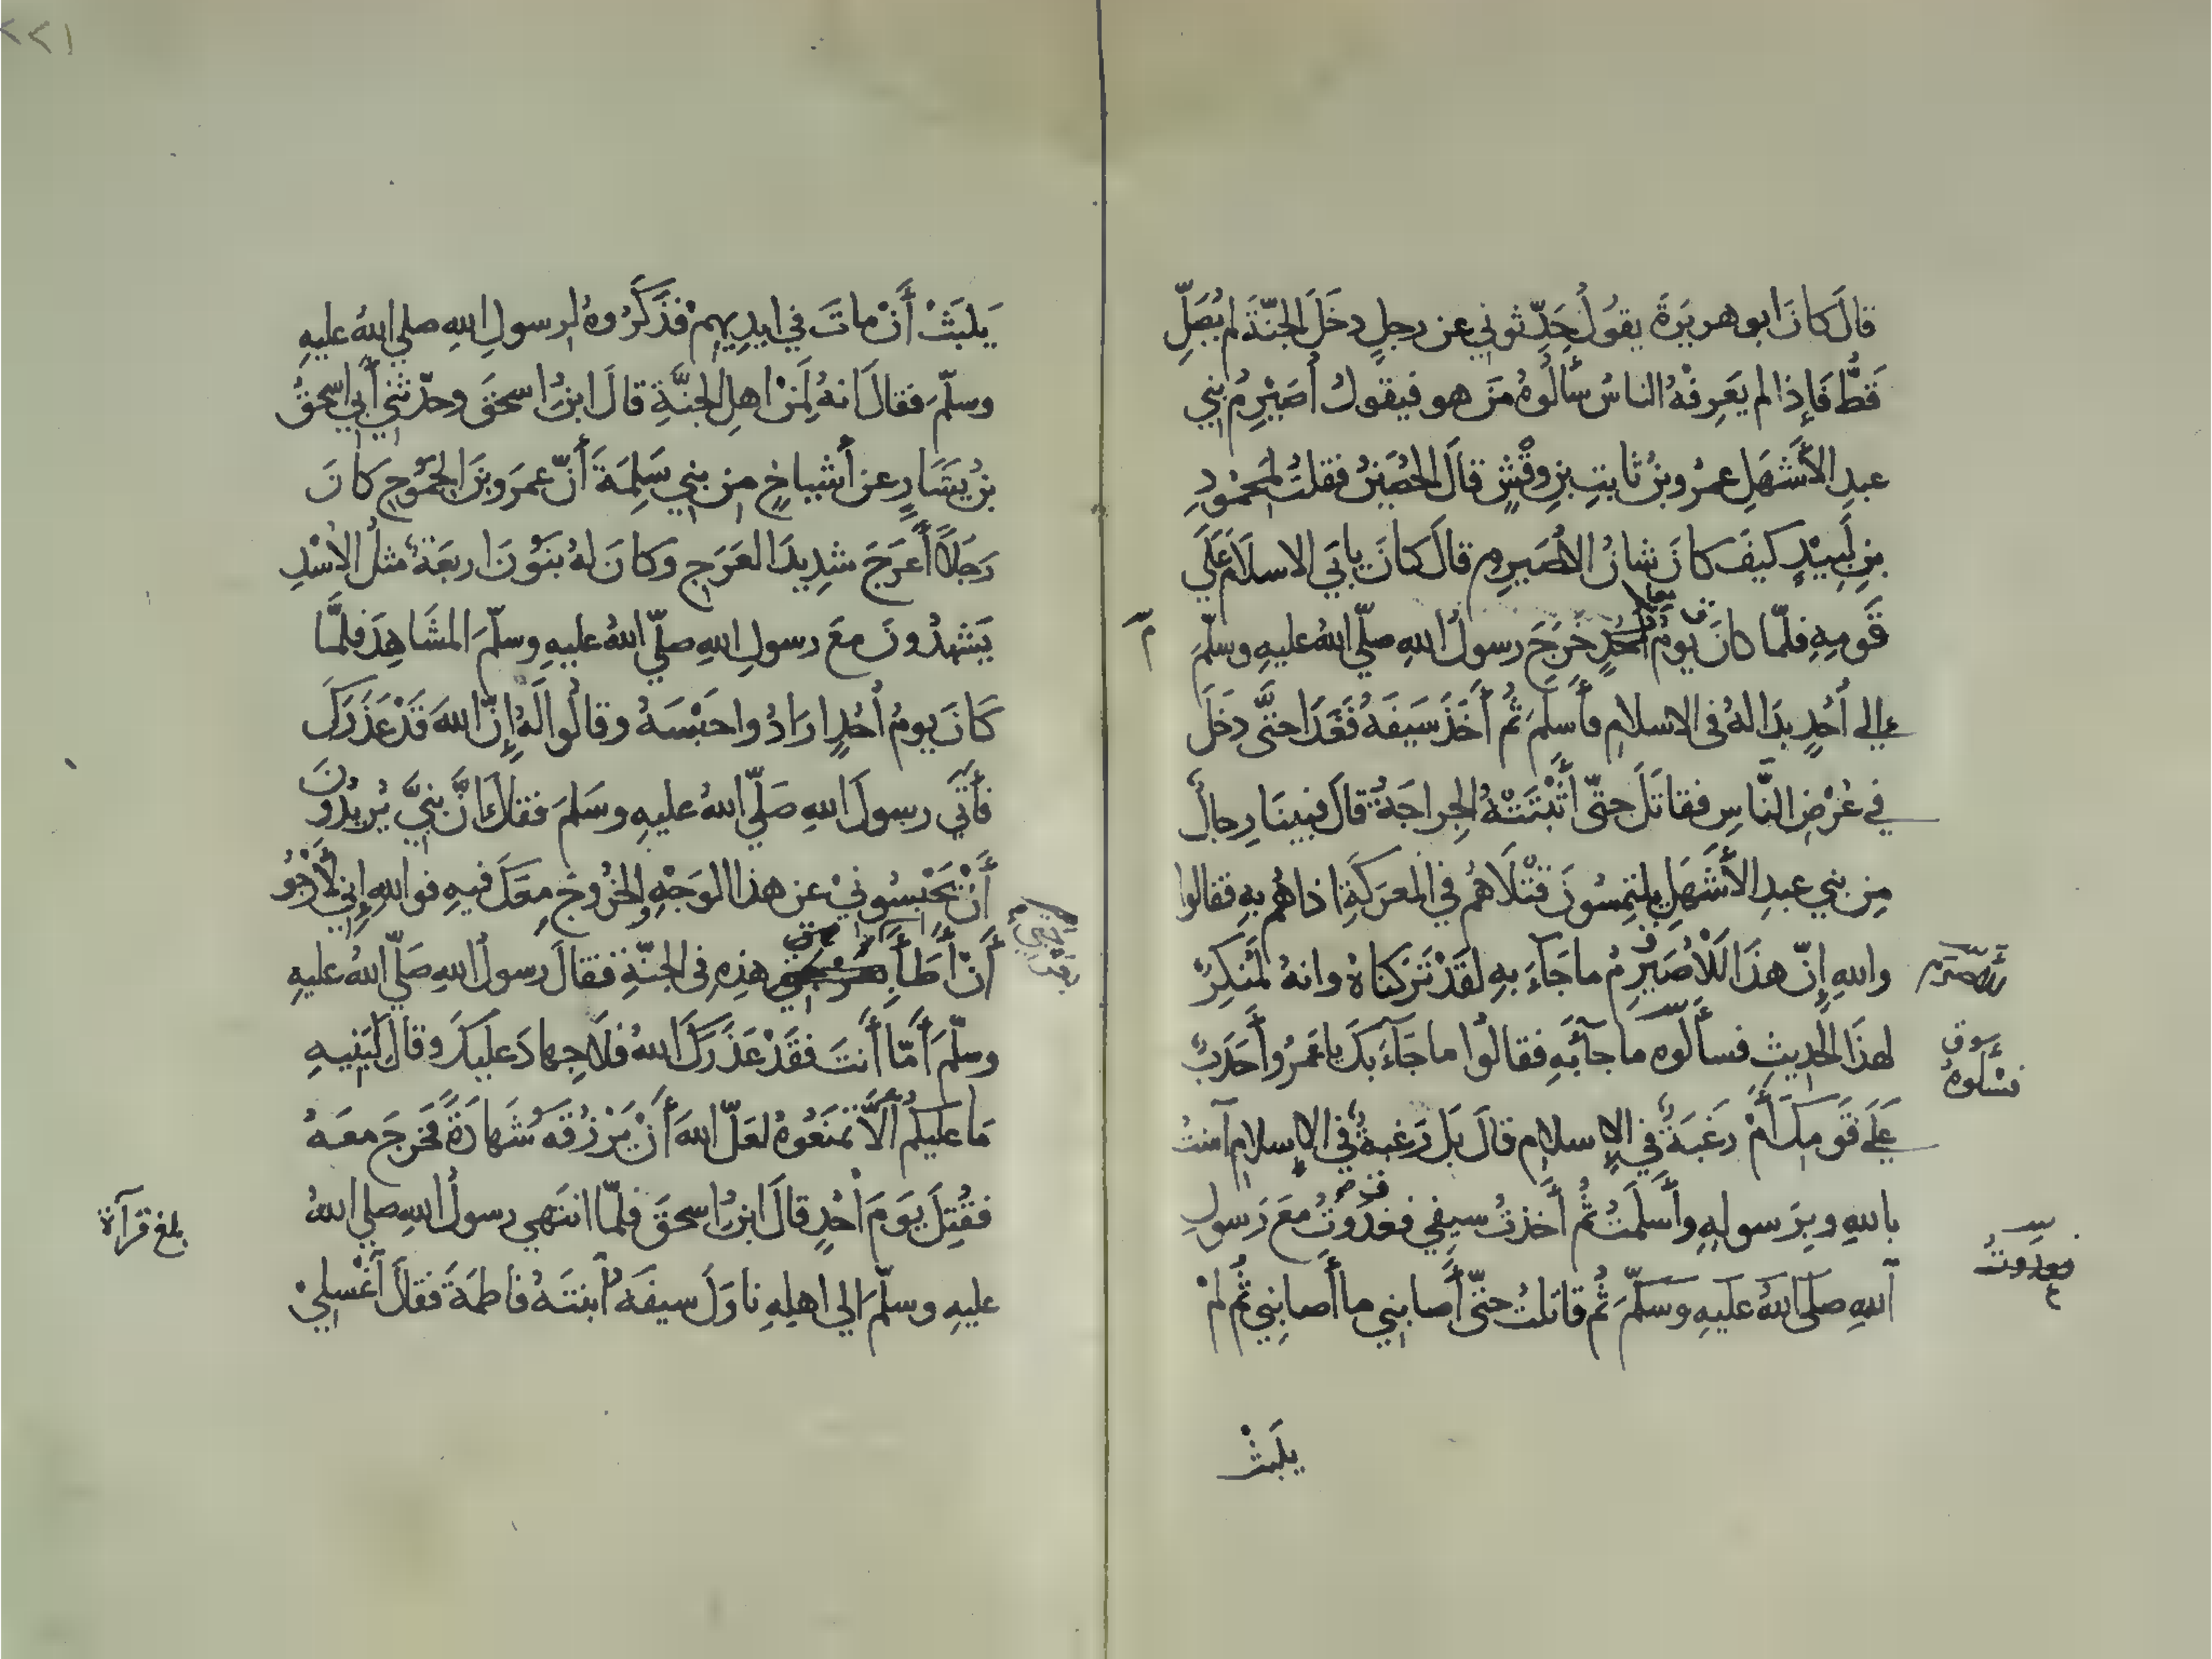 قالَ كانَ ابو هريَرةَ يقولُ حَدِّثوني عن رجلٍ دخَلَ الجنّةَ لم يُصَلِّ
قَطُّ فَإِذا لم يَعرِفْهُ الناسُ سَأَلُوهُ مَن هو فيقولُ أُصَيْرِمُ بني
عبدِ الأَشهَلِ عمرُو بنُ ثابتِ بنِ وقْشٍ قالَ الحُصَينُ فقلتُ لمحمُودِ
بنِ لَبِيْدٍ كيفَ كانَ شانُ الأُصَيرِمِ قالَ كانَ يابَي الاسلَامَ عَلَي
قَومِهِ فلمّا كانَ يومُ أُحُدٍ خَرَجَ رسولُ اللهِ صلّي اللهُ عليهِ وسلّمَ
إلي أُحُدٍ بدَا لهُ في الاسلامِ فأَسلَمَ ثُم أَخَذَ سَيفَهُ فَغَدَا حتَّى دخَلَ
في عُرْضِ النَّاسِ فقاتَلَ حتّى أَثْبَتَتْهُ الجِراحَةُ قالَ فبينَا رِجالٌ
مِن بني عبدِ الأَشهَلِ يلتمِسُونَ قتْلَاهُم في المَعرَكَةِ اذا هُم بهِ فقالوا
واللهِ إِنّ هذَا لَلأُصَيرِمُ ما جَاءَ بهِ لقَدْ تَرَكناهُ وانهُ لمُنكِرٌ
لهذَا الحديثِ فسأَلُوه ما جآءَ بهِ فقالُوا ما جَآءَ بكَ يا عَمرُو أَحَدَبٌ
عَلَي قَومِكَ أَمْ رغبَةٌ في الإسلامِ قالَ بَل رَغبةٌ في الإسلامِ آمنتُ
باللهِ وبرَسولهِ وأَسلَمتُ ثُم أَخذتُ سيفي فغدَوتُ معَ رَسولِ
اللهِ صلى اللهُ عليهِ وسَلّمَ ثُم قاتلتُ حتّى أَصابني ما أَصابني ثُم لمْ
يلبَثْ
فسْأَلوهُ
فغدوتُ
يَلبَثْ أَنْ ماتَ في ايدِيهِمْ فذَكَرُوهُ لرسولِ اللهِ صلي اللهُ عليهِ
وسلّمَ فقالَ انهُ لَمِنْ اهلِ الجنَّةِ قالَ ابنُ اسحقَ وحدّثني أَبي اسحقُ
بنُ يَسَارٍ عن أَشياخٍ من بني سَلِمَةَ أَنّ عمرَو بنَ الجَمُوحِ كانَ
رَجلًا أَعرَجَ شدِيدَ العَرَجِ وكانَ لهُ بَنُونَ اربعَةٌ مثلُ الأُسْدِ
يَشهدُونَ معَ رسولِ اللهِ صلّي اللهُ عليهِ وسلّمَ المشَاهِدَ فلمَّا
كَانَ يومُ أُحُدٍ ارَادُوا حَبْسَهُ وقالُوا لهُ إِنّ اللهَ قَدْ عَذَرَكَ
فأَتَي رسولَ اللهِ صَلّي اللهُ عليهِ وسَلمَ فقالَ انَّ بنيَّ يُريدُونَ
أَنْ يَحْبِسُونيْ عن هذا الوَجْهِ والخرُوجِ مِعَكَ فيهِ فواللهِ إِني لأَرْجُو
أَنْ أَطَأَ بعَرْجتي هذِهِ في الجنّةِ فقالَ رسولُ اللهِ صَلّي اللهُ عليهِ
وسلّمَ أَمّا أَنتَ فقَدْ عَذَرَكَ اللهُ فلَا جِهادَ عليكَ وقالَ لِبَنيهِ
مَا عليكُم أَلَّا تَمنَعُوهُ لعَلّ اللهَ أَنْ يَرْزُقَهُ شَهادَةً فخرَجَ معَهُ
فقُتِلَ يَومَ أُحُدٍ قالَ ابنُ اسحقَ فلمّا انتَهي رسولُ اللهِ صلي اللهُ
عليهِ وسلّمَ الي اهلِهِ ناوَلَ سيفَهُ ابنتَهُ فاطمَةَ فقالَ اغْسِليْ
بعرجتي
بلغ قرآة
٢٢١